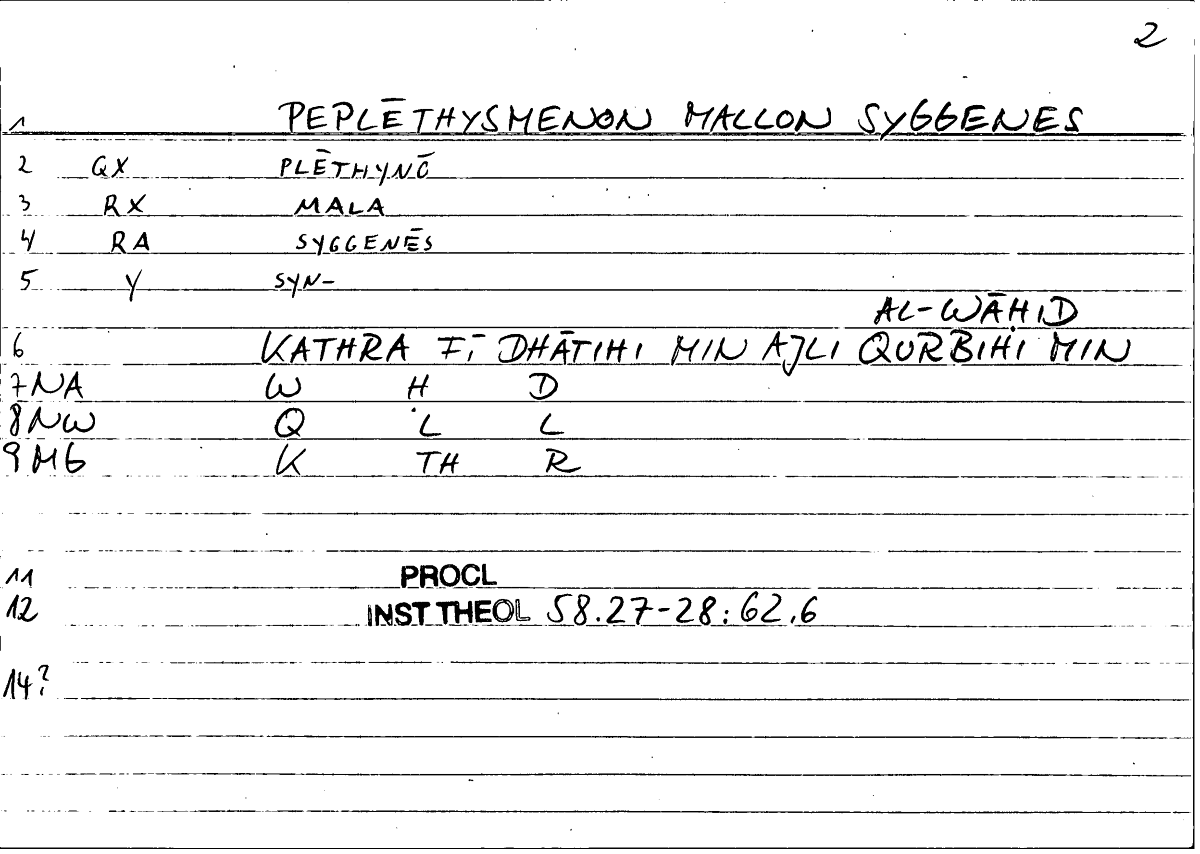 2
1 PEPLĒTHYSMENON MALLON SYGGENES
2 QX PLĒTHYNŌ
3 RX MALA
4 RA SYGGENĒS
5 Y SYN-
AL-WĀḤID
6 KATHRA FĪ DHĀTIHI MIN AJLI QURBIHI MIN
7 NA W Ḥ D
8 NW Q L L
9 MG K TH R
11 PROCL
12 INST THEOL 58.27-28: 62.6
14?